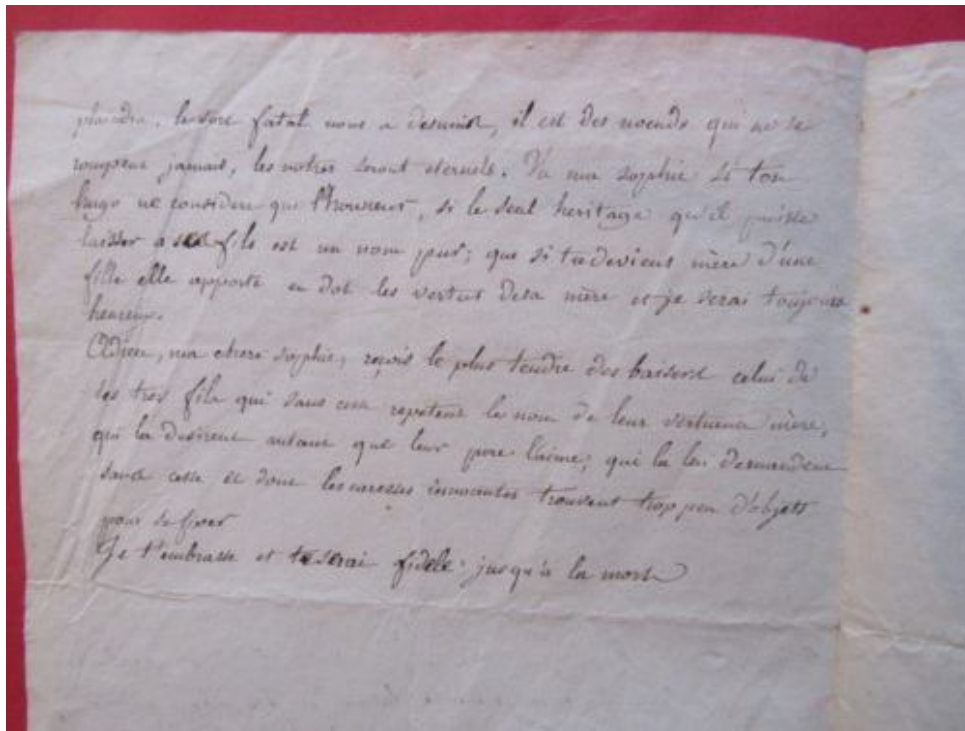 plaindre, le sort fatal nous a desunist, il est des noeuds qui ne se
rompent jamais, les notres seront eternels. Va ma sophie si ton
hugo ne considere que l'honneur, si le seul heritage qu'il puisse
laisser a ses fils est un nom pur; que si tu deviens mère d'une
fille elle apporte en dot les vertus de sa mère et je serai toujours
heureux.
Adieu, ma chere sophie, reçois le plus tendre des baisers celui de
tes trois fils qui sans cesse repetent le nom de leur vertueuse mère,
qui la desirent autant que leur pere l'aime, qui la lui demandent
sans cesse et dont les caresses innocentes trouvent trop peu d'objets
pour se fixer
Je t'embrasse et te serai fidele jusqu'à la mort